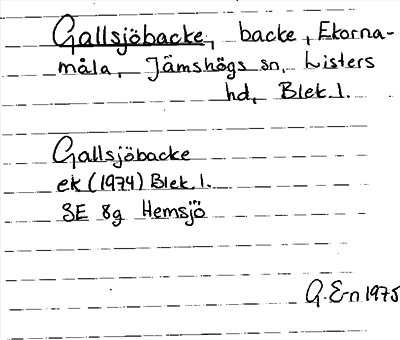 Gallsjöbacke, backe, Ekorna-
måla, Jämshögs sn, Listers
hd, Blek. l.
Gallsjöbacke
ek (1974) Blek. l.
3E 8g Hemsjö
G. E-n 1975